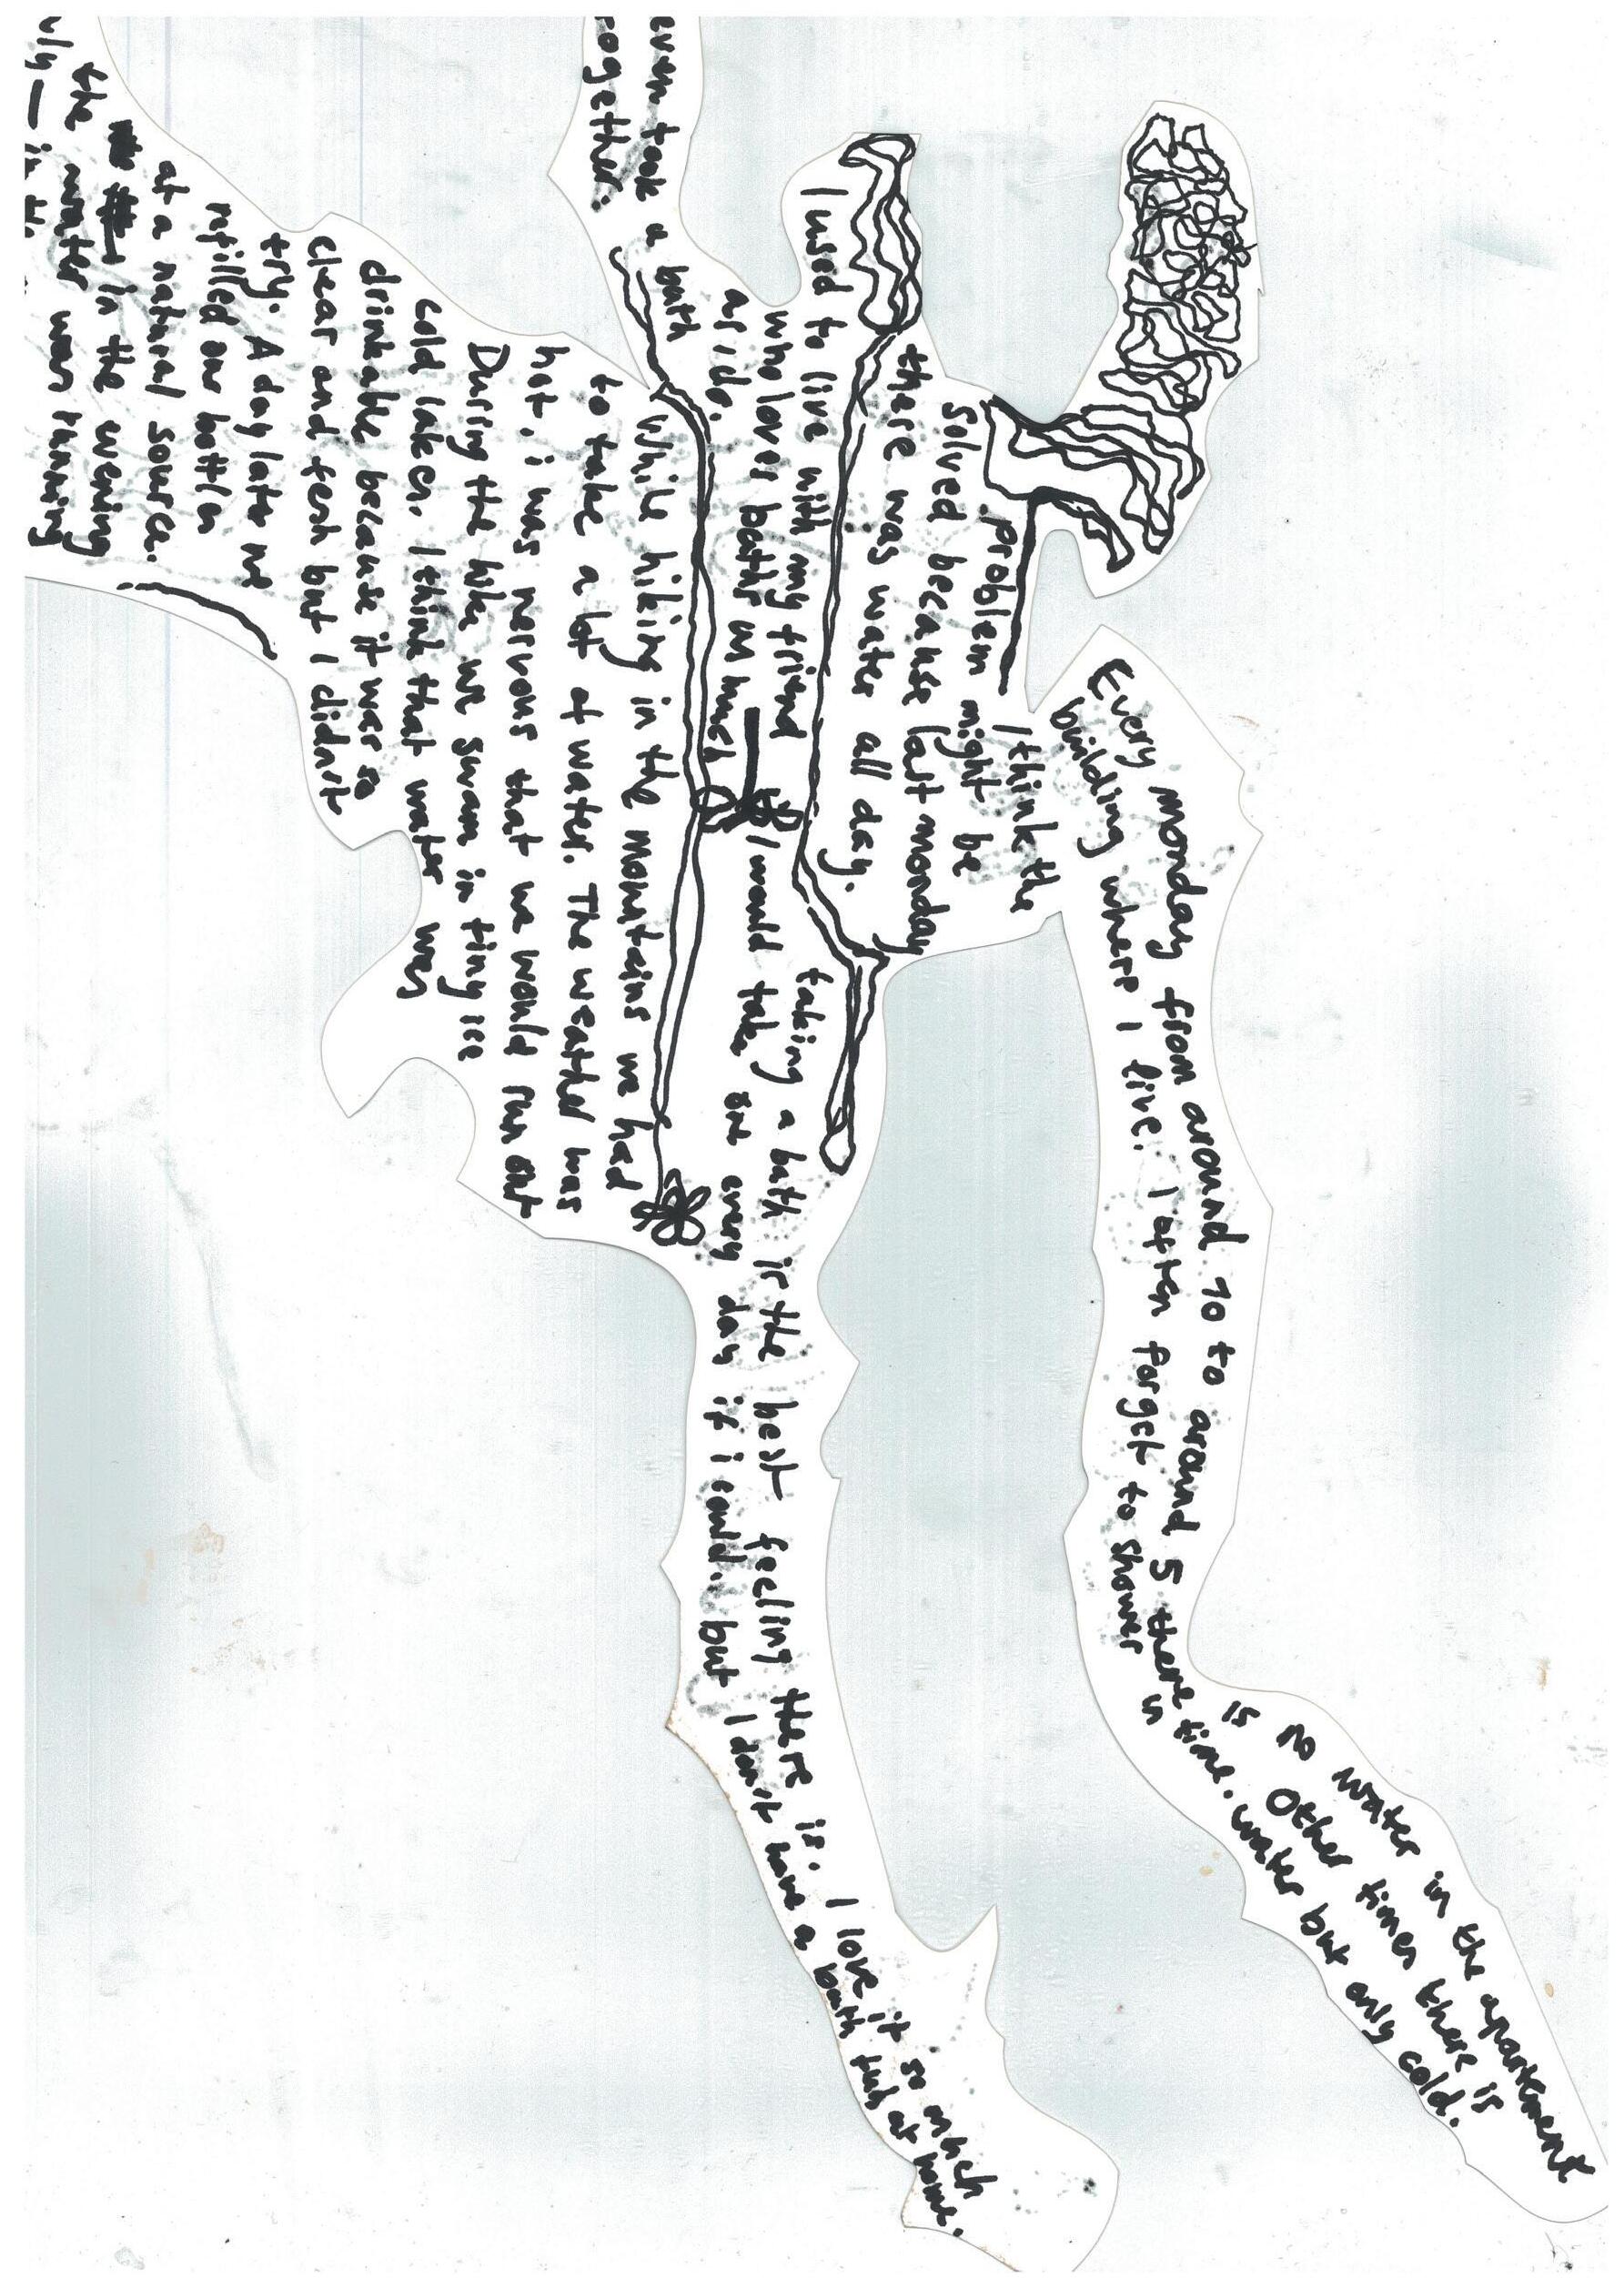 Every monday from around 10 to around 5 there
is no water in the apartment
building where I live. I often forget to shower
in time. Other times there is
water but only cold.
I think the
problem might be
solved because last monday
there was water all day.
I used to live with my friend
who loves baths as much
as i do.
even took a bath
together.
taking a bath is the best feeling there is. I love it so much
I would take one every day if i could. but I don't have a bath tub at home.
While hiking in the mountains we had
to take a lot of water. The weather was
hot. i was nervous that we would run out
During the hike we swam in tiny ice
cold lakes. I think that water was
drinkable because it was so
clear and fesh but I didn't
try. A day late we
refilled our bottles
at a natural source.
in the evening
the water was running